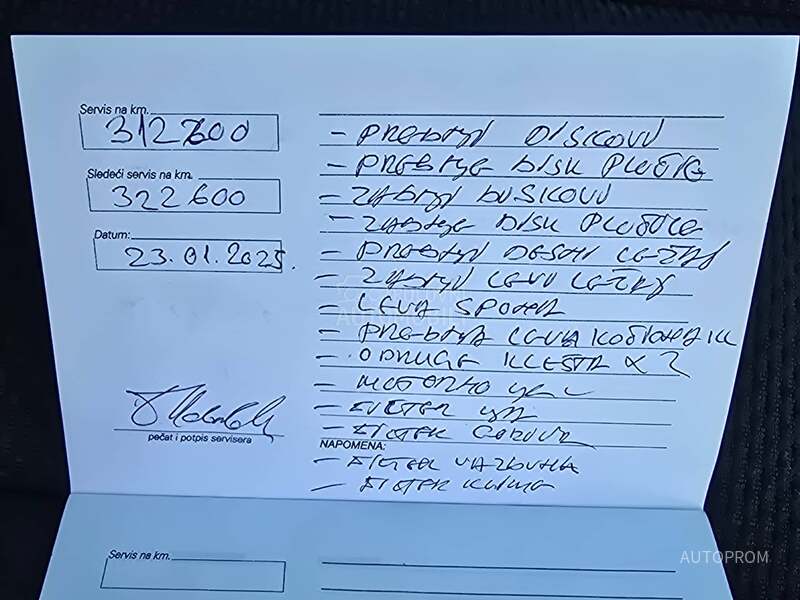 Servis na km.
312600
Sledeći servis na km.
322600
Datum:
23.01.2025.
pečat i potpis servisera
- PREDNJI DISKOVI
- PREDNJE DISK PLOČICE
- ZADNJI DISKOVI
- ZADNJE DISK PLOČICE
- PREDNJI DESNI LEŽAJ
- ZADNJI LEVI LEŽAJ
- LEVA SPONA
- PREDNJA LEVA
- KLEŠTA X 2
- MOTORNO ULJE
- FILTER ULJA
- FILTER GORIVA
NAPOMENA:
- FILTER VAZDUHA
- FILTER KLIME
Servis na km.
AUTOPROM